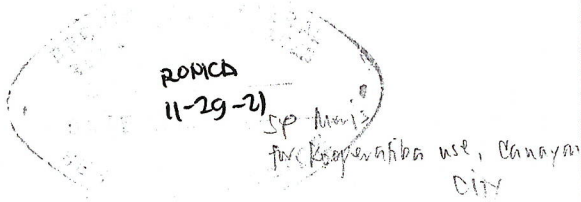 RONICA
11-29-21
SP
for Kooperatiba use, Cauayan
City